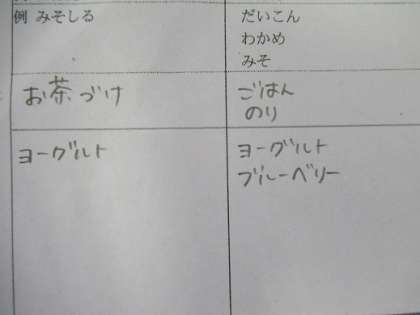 例 みそしる
だいこん
わかめ
みそ
お茶づけ
ごはん
のり
ヨーグルト
ヨーグルト
ブルーベリー